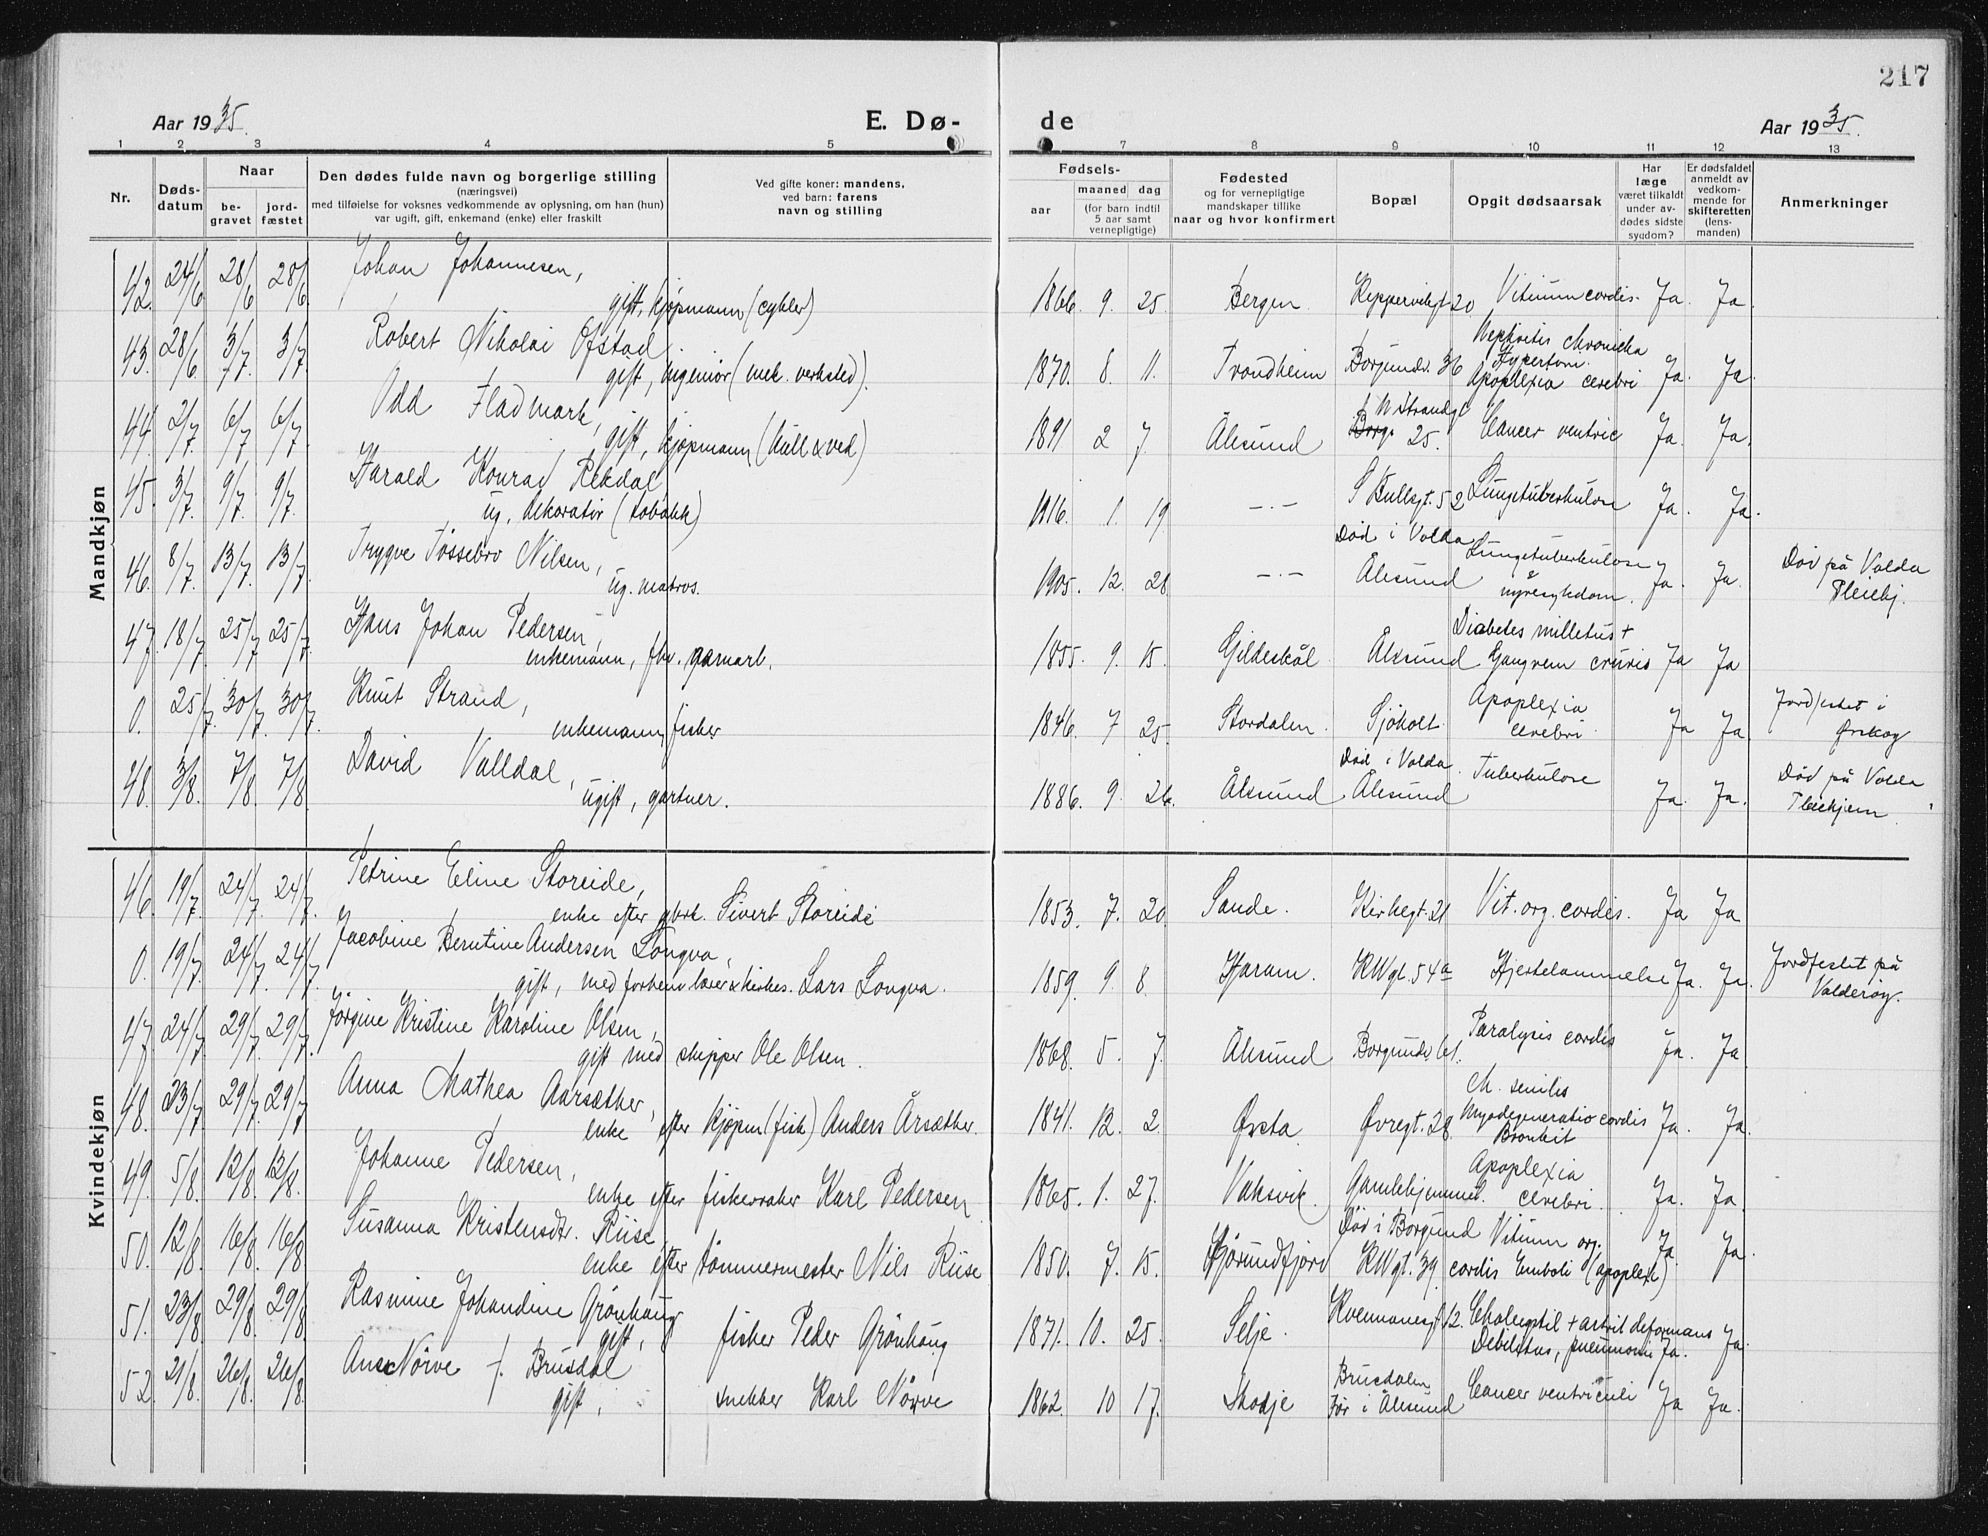 217
Aar 1935. E. Dø- de Aar 1935.
1 2 3 4 5 7 8 9 10 11 12 13
Nr. Døds-datum Naar be-gravet jord-fæstet Den dødes fulde navn og borgerlige stilling (næringsvei) med tilføielse for voksnes vedkommende av oplysning, om han (hun) var ugift, gift, enkemand (enke) eller fraskilt Ved gifte koner: mandens, ved barn: farens navn og stilling Fødsels- aar maaned dag (for barn indtil 5 aar samt vernepligtige) Fødested og for vernepligtige mandskaper tillike naar og hvor konfirmert Bopæl Opgit dødsaarsak Har læge været tilkaldt under av-dødes sidste sygdom? Er dødsfaldet anmeldt av vedkom-mende for skifteretten (lens-manden) Anmerkninger
Mandkjøn
42. 24/6 28/6 28/6. Johan Johannesen,
gift, kjøpmann (cykler) 1866. 9. 25. Bergen 20 Vitium cordis. Ja. Ja.
43. 28/6 3/7. 3/7. Robert Nikolai Ofstad
gift, ingeniør (mek. verksted). 1870. 8. 11. Trondheim Borgundv. 36 Nephritis chronicha
Hypertoni.
Apoplexia cerebri Ja. Ja.
44. 2/7. 6/7 6/7 Odd Fladmark,
gift, kjøpmann (kull & ved) 1891 2 7. Ålesund N Strandgt
Borg. 25. Cancer ventric Ja. Ja.
45. 3/7. 9/7. 9/7. Harald Konrad Rekdal
ug. dekoratør (tobakk) 1916. 1. 19 —.— 52 Lungetuberkulose Ja. Ja.
46. 8/7. 13/7. 13/7. Trygve Tøssebro Nilsen,
ug. matros. 1905. 12. 28 —.— Død i Volda
Ålesund Lungetuberkulose
nyresykdom. Ja. Ja. Død på Volda
Pleiehj.
47. 18/7 25/7 25/7. Hans Johan Pedersen,
enkemann, fhv. garnarb. 1855. 9. 15. Gildeskål. Ålesund Diabetes milletus +
Gangren cruris Ja Ja
0. 25/7. 30/7. 30/7. Knut Strand,
enkemann, fisker 1846. 7 25. Stordalen. Sjøholt. Apoplexia
cerebri Ja Ja Jordfestet i
Ørskog
48. 3/8. 7/8. 7/8. David Valldal,
ugift, gartner. 1886. 9. 26. Ålesund Død i Volda.
Ålesund Tuberkulose Ja. Ja. Død på Volda
Pleiehjem.
Kvindekjøn
46. 19/7. 24/7. 24/7. Petrine Eline Storeide,
enke efter gbrk. Sivert Storeide 1853. 7. 20 Sande. Kirkegt. 21 Vit. org. cordis. Ja Ja
0. 19/7. 24/7. 24/7. Jacobine Berntine Andersen Longva,
gift, med forhenv lærer & kirkes. Lars Longva. 1859. 9. 8. Haram. KWgt. 54a Hjertelammelse Ja. Ja. Jordfestet på
Valderøy.
47. 24/7. 29/7. 29/7. Jørgine Kristine Karoline Olsen,
gift med skipper Ole Olsen. 1868. 5. 7. Ålesund Borgundv. 61. Paralysis cordis Ja. Ja.
48. 23/7 29/7. 29/7 Anna Mathea Aarsæther,
enke efter kjøpm (fisk) Anders Årsæther. 1841. 12. 2. Ørsta Øvregt. 28. M. senilis
Myodegeneratio cordis
Bronkit Ja. Ja.
49. 5/8. 12/8. 12/8. Johanne Pedersen,
enke efter fiskevraker Karl Pedersen 1865. 1. 27. Vaksvik. Gamlehjemmet. Apoplexia
cerebri. Ja. Ja.
50. 12/8. 16/8. 16/8. Susanna Kristensdtr. Riise
enke efter tømmermester Nils Riise 1850. 7. 15. Hjørundfjord Død i Borgund
KWgt. 39 Vitium org.
cordis Emboli (apoplexi) Ja. Ja.
51. 23/8. 29/8. 29/8. Rasmine Johandine Grønhaug
gift, fisker Peder Grønhaug 1871. 10. 25. Selje. 12. + artrit deformans
Debilitas, pneumoni Ja. Ja.
52. 21/8. 26/8. 26/8. Ane Nørve f. Brusdal
gift, snekker Karl Nørve 1862. 10 17. Skodje Brusdalen
Før i Ålesund Cancer ventriculi Ja Ja.